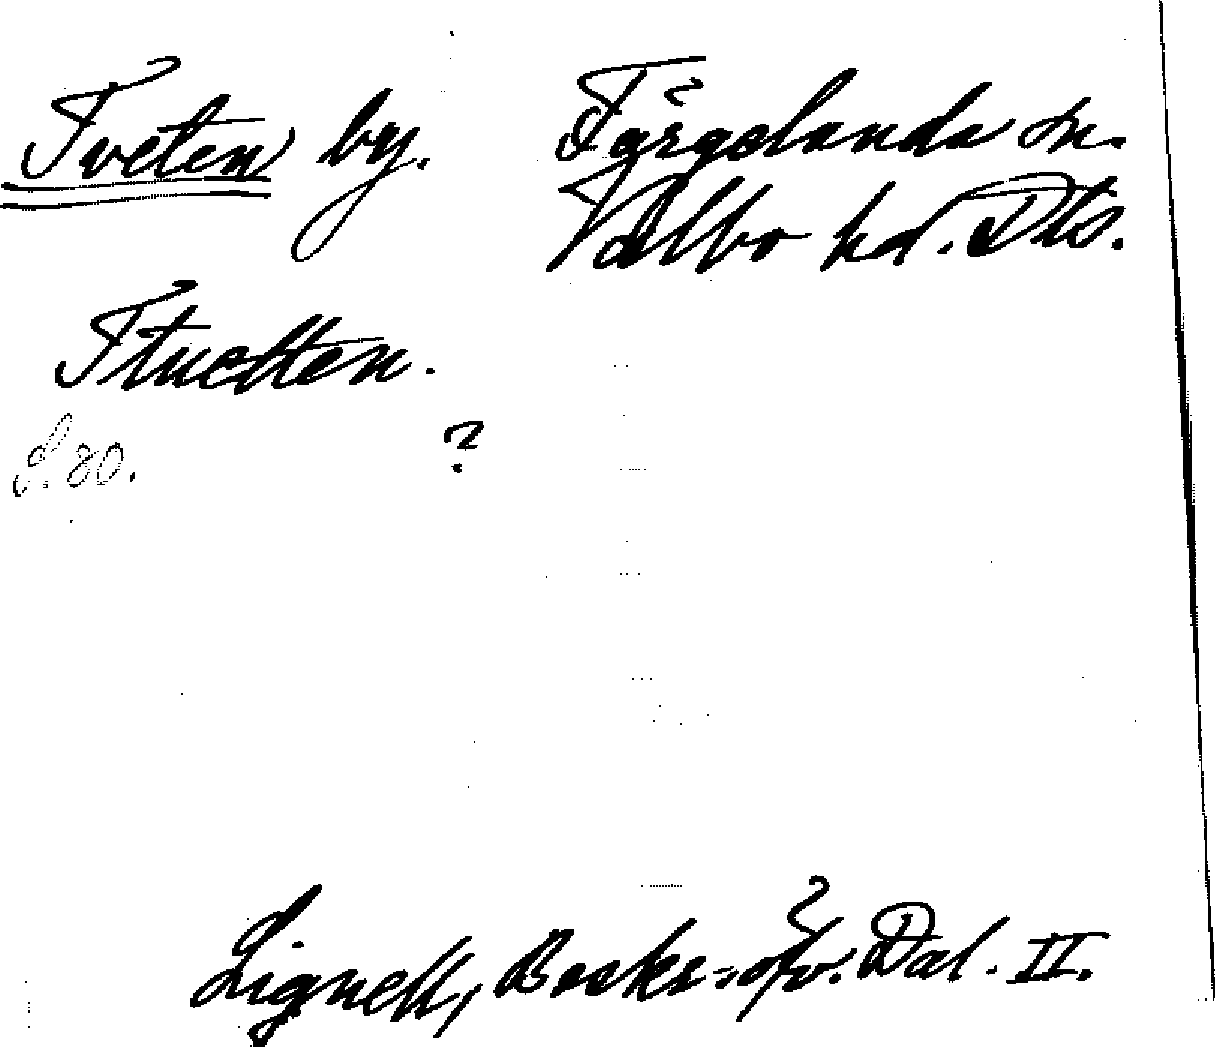 Tveten by. Färgelanda sn.
Valbo hd. Dls.
Ttuetten.
S. 80. ?
Lignell, Beskr. öfv. Dal. II.